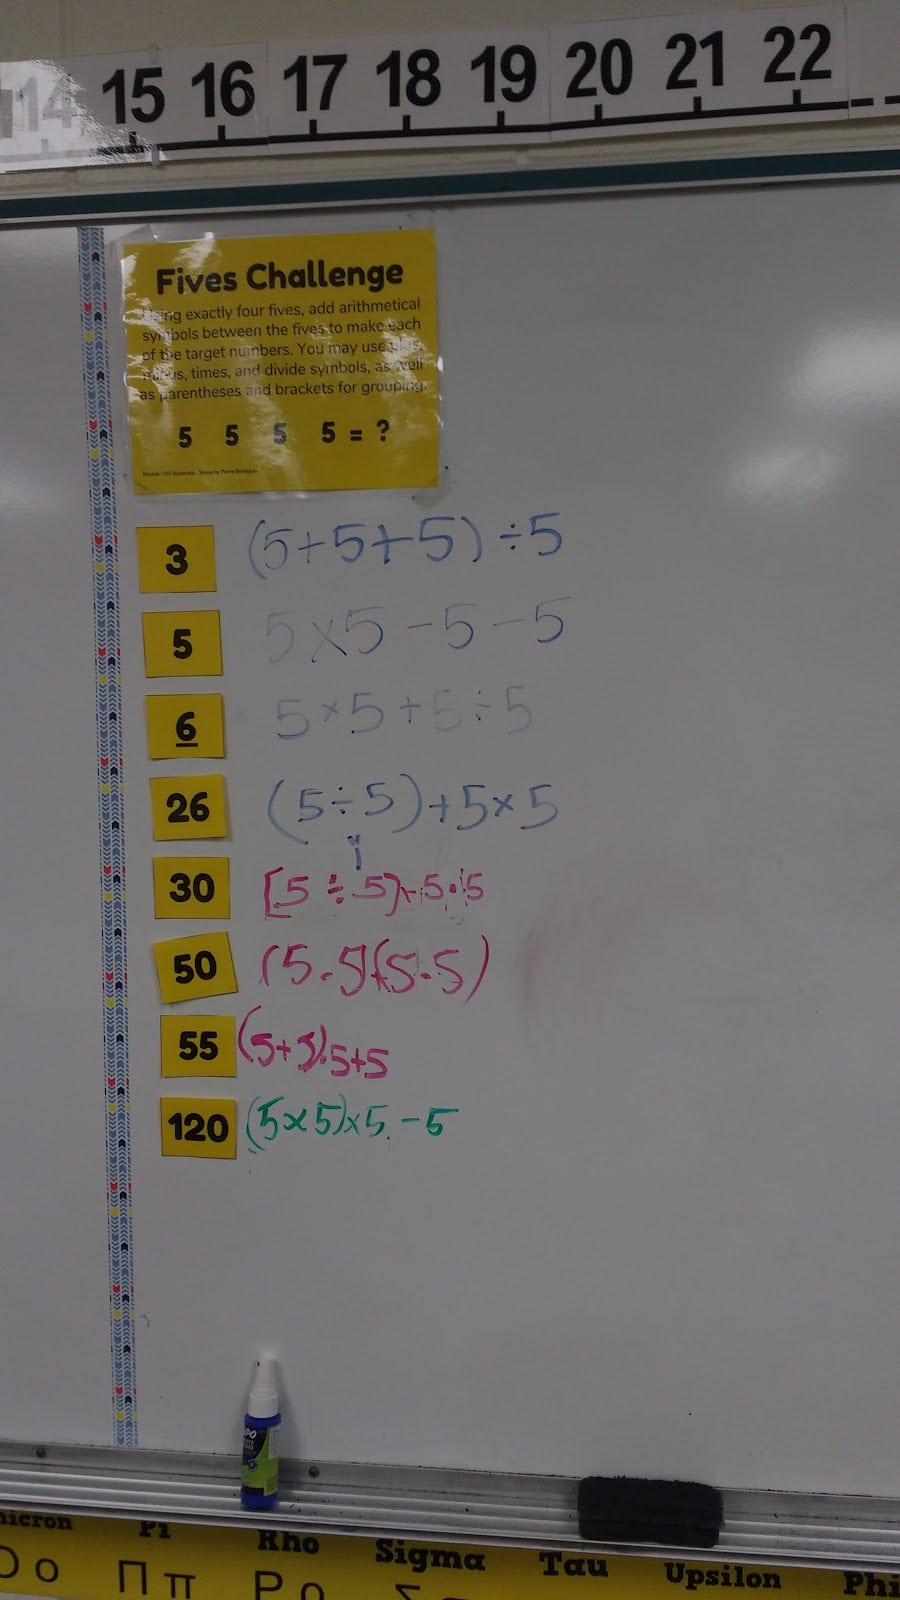 14 15 16 17 18 19 20 21 22
Fives Challenge
Using exactly four fives, add arithmetical
symbols between the fives to make each
of the target numbers. You may use plus,
minus, times, and divide symbols, as well
as parentheses and brackets for grouping.
5 5 5 5 = ?
3 (5+5+5)÷5
5 5×5-5-5
6 5×5+5÷5
26 (5÷5)+5×5
30 [5÷5]+5·5
50 (5·5)+(5·5)
55 (5+5)·5+5
120 (5×5)×5-5
micron Pi Rho Sigma Tau Upsilon Phi
O o Π π Ρ ρ Σ